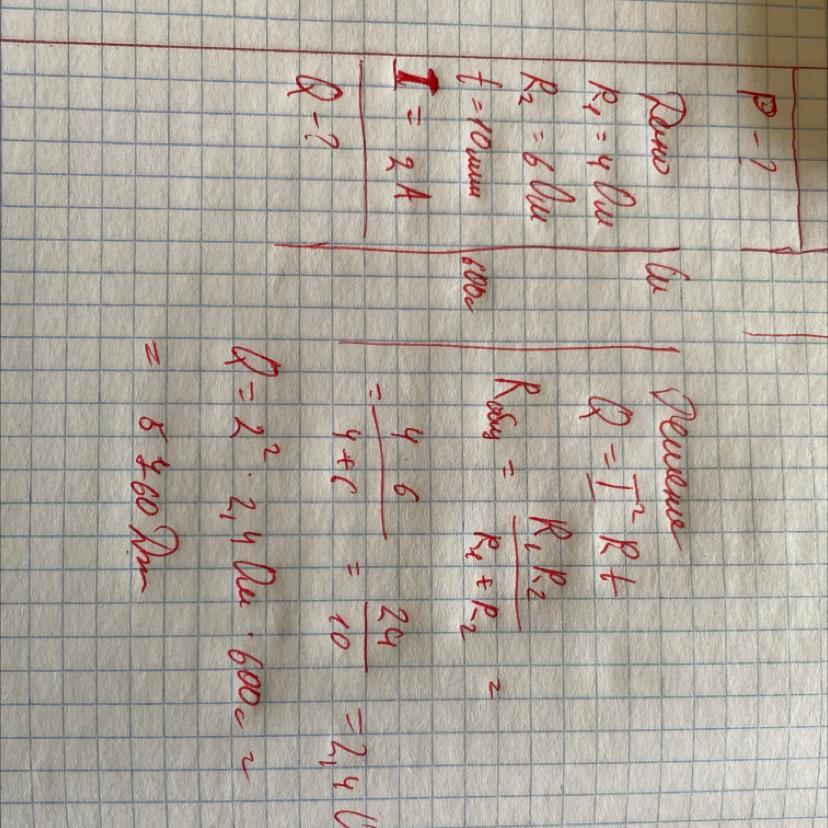 P - ?
Дано
R₁ = 4 Ом
R₂ = 6 Ом
t = 10 мин
I = 2 А
Q - ?
Си
600с
Решение
Q = I² R t
Rобщ = R₁ R₂ / R₁ + R₂ =
= 4 · 6 / 4 + 6 = 24 / 10 = 2,4
Q = 2² · 2,4 Ом · 600с =
= 5760 Дж